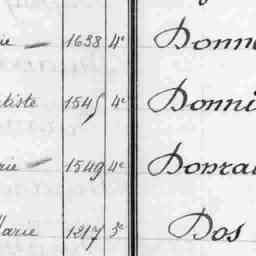 ie — 1638 4e Donn
tiste 1545 4e Donni
rie — 1549 4e Donra
Marie 1217 3e Dos